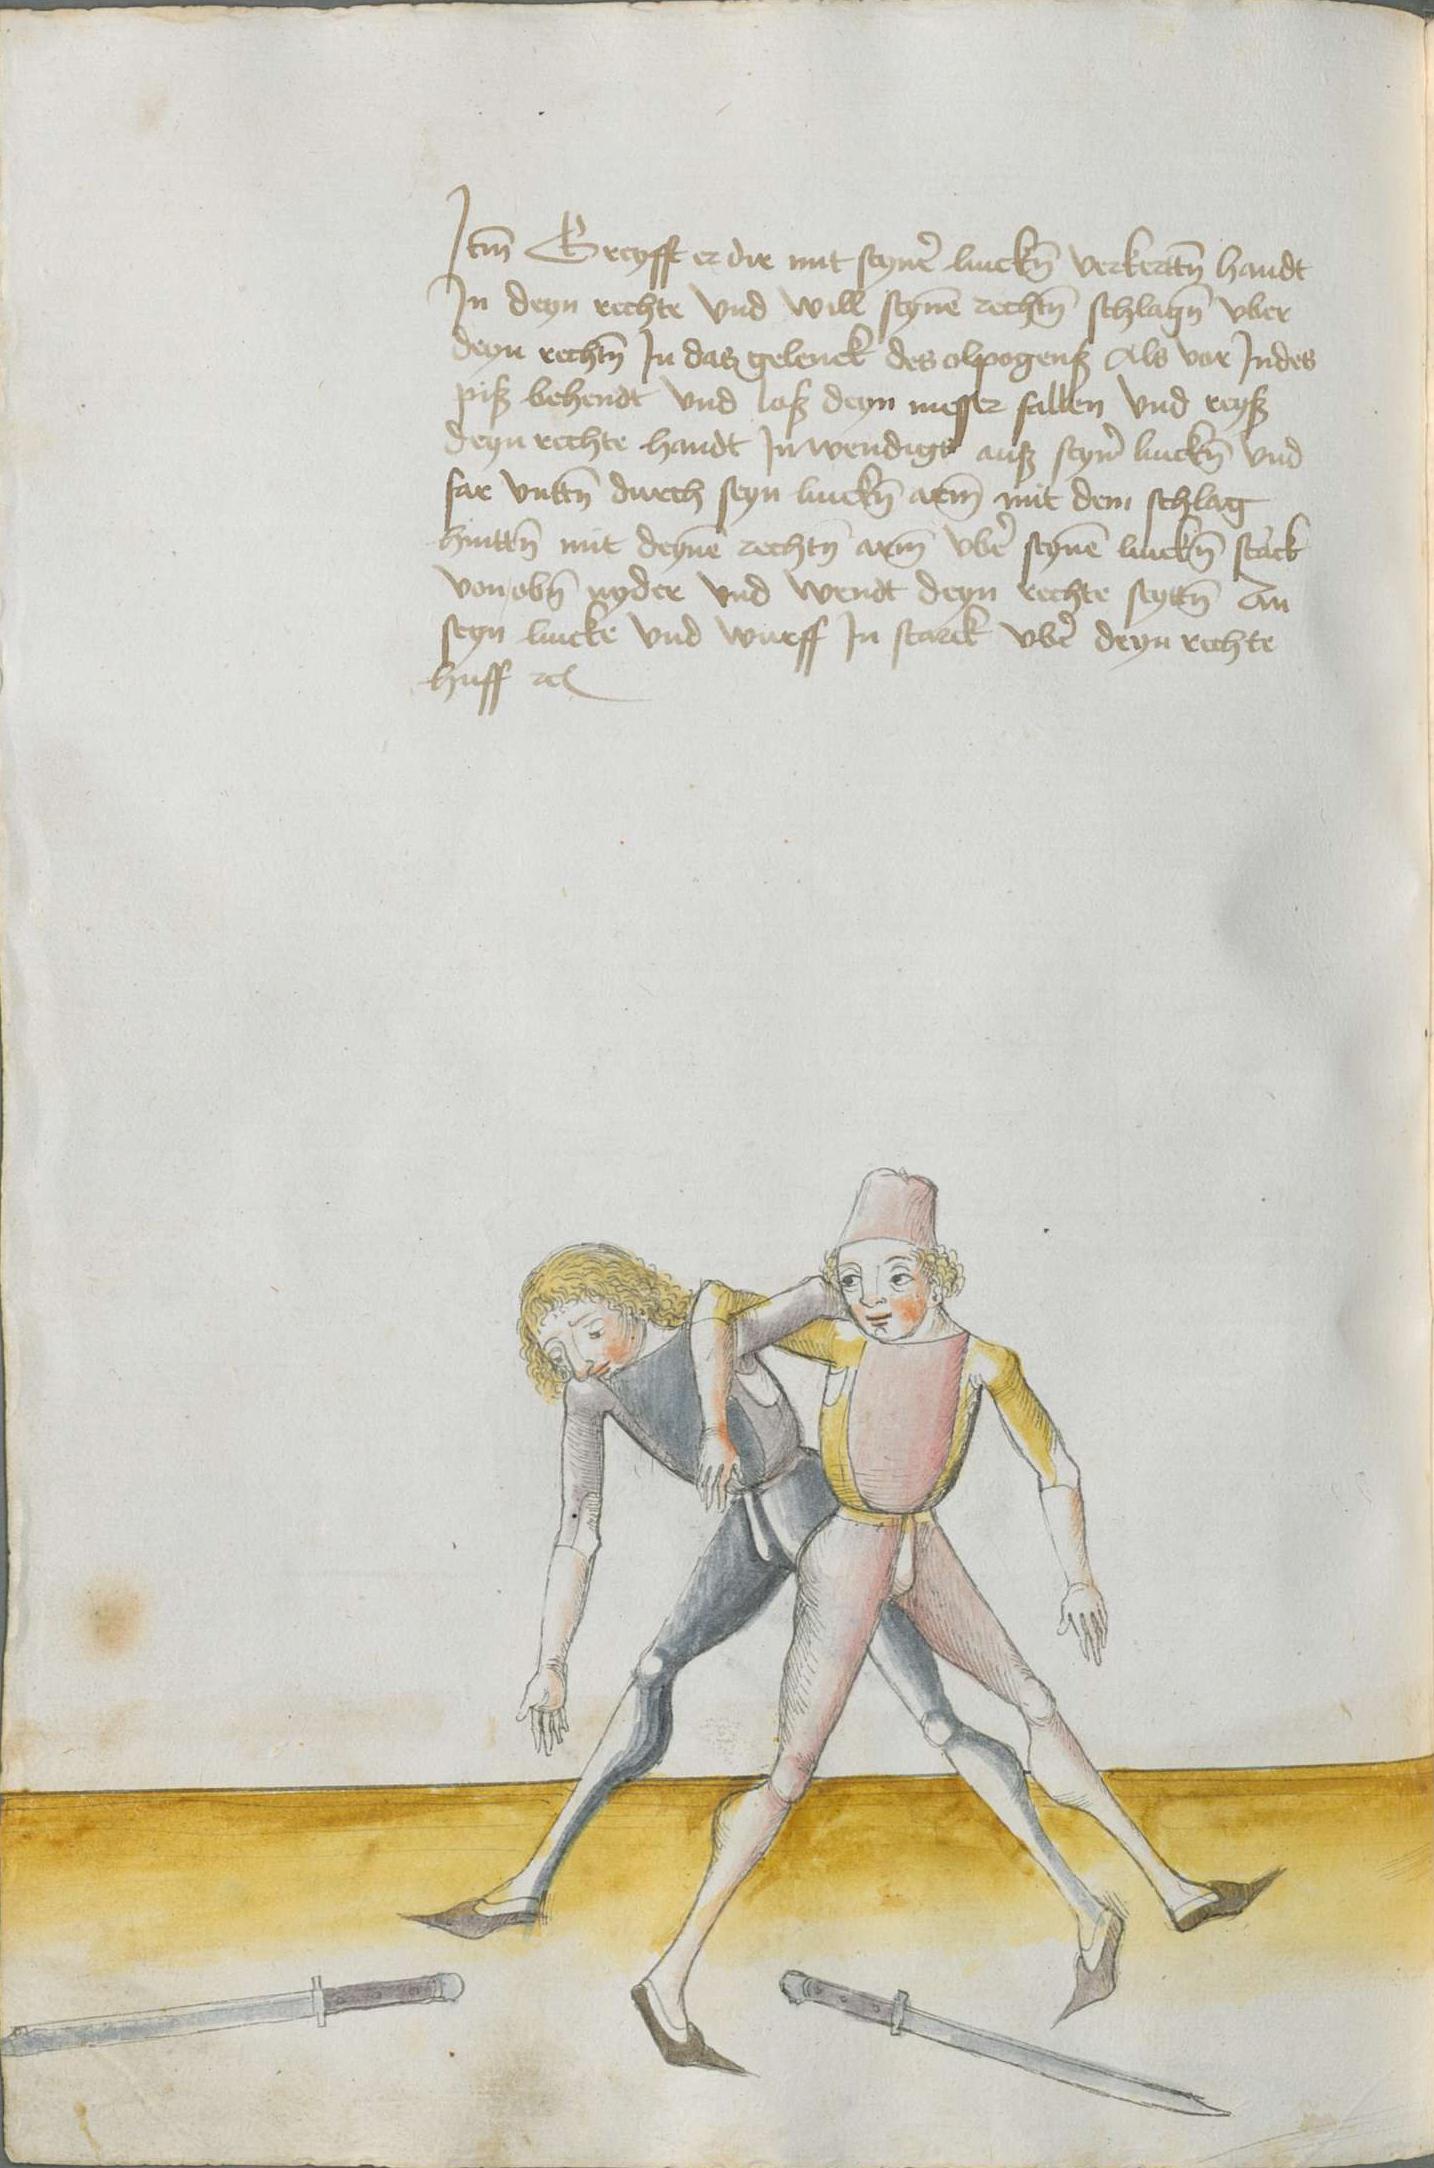 Itm̃ Greyfft er dir mit seyner̃ linckñ verkerttñ handt
In deyn rechte vnd will seynẽ rechtñ schlagñ vber
deyn rechtñ In das gelenck des elpogenß Als vor Indes
piß behendt vnd loß deyn messer fallen vnd reyß
deyn rechte handt Inwendigs auß seyner̃ linckñ vnd
far vnttñ durch seyn linckñ arm̃ mit dem schlag
hinttñ mit deynẽ rechtñ arm̃ vber̃ seynẽ linckñ starck
von obñ nyder vnd wendt deyn rechte seyttñ An
seyn lincke vnd wurff In starck vber̃ deyn rechte
huff ꝛc